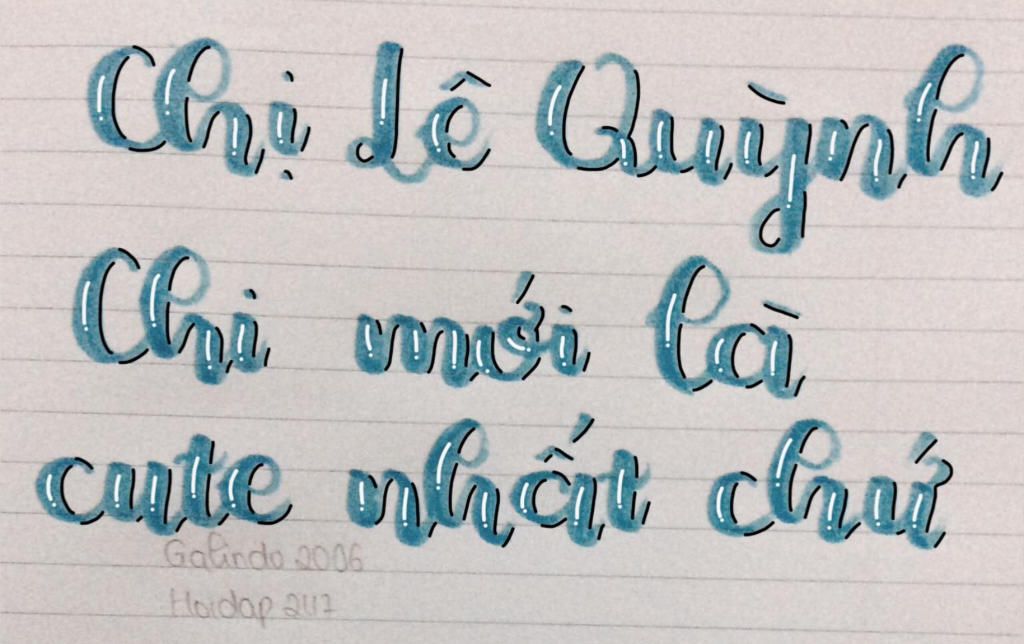 Chị Lê Quỳnh
Chi mới là
cute nhất chứ
Galindo 2006
Hoidap 247